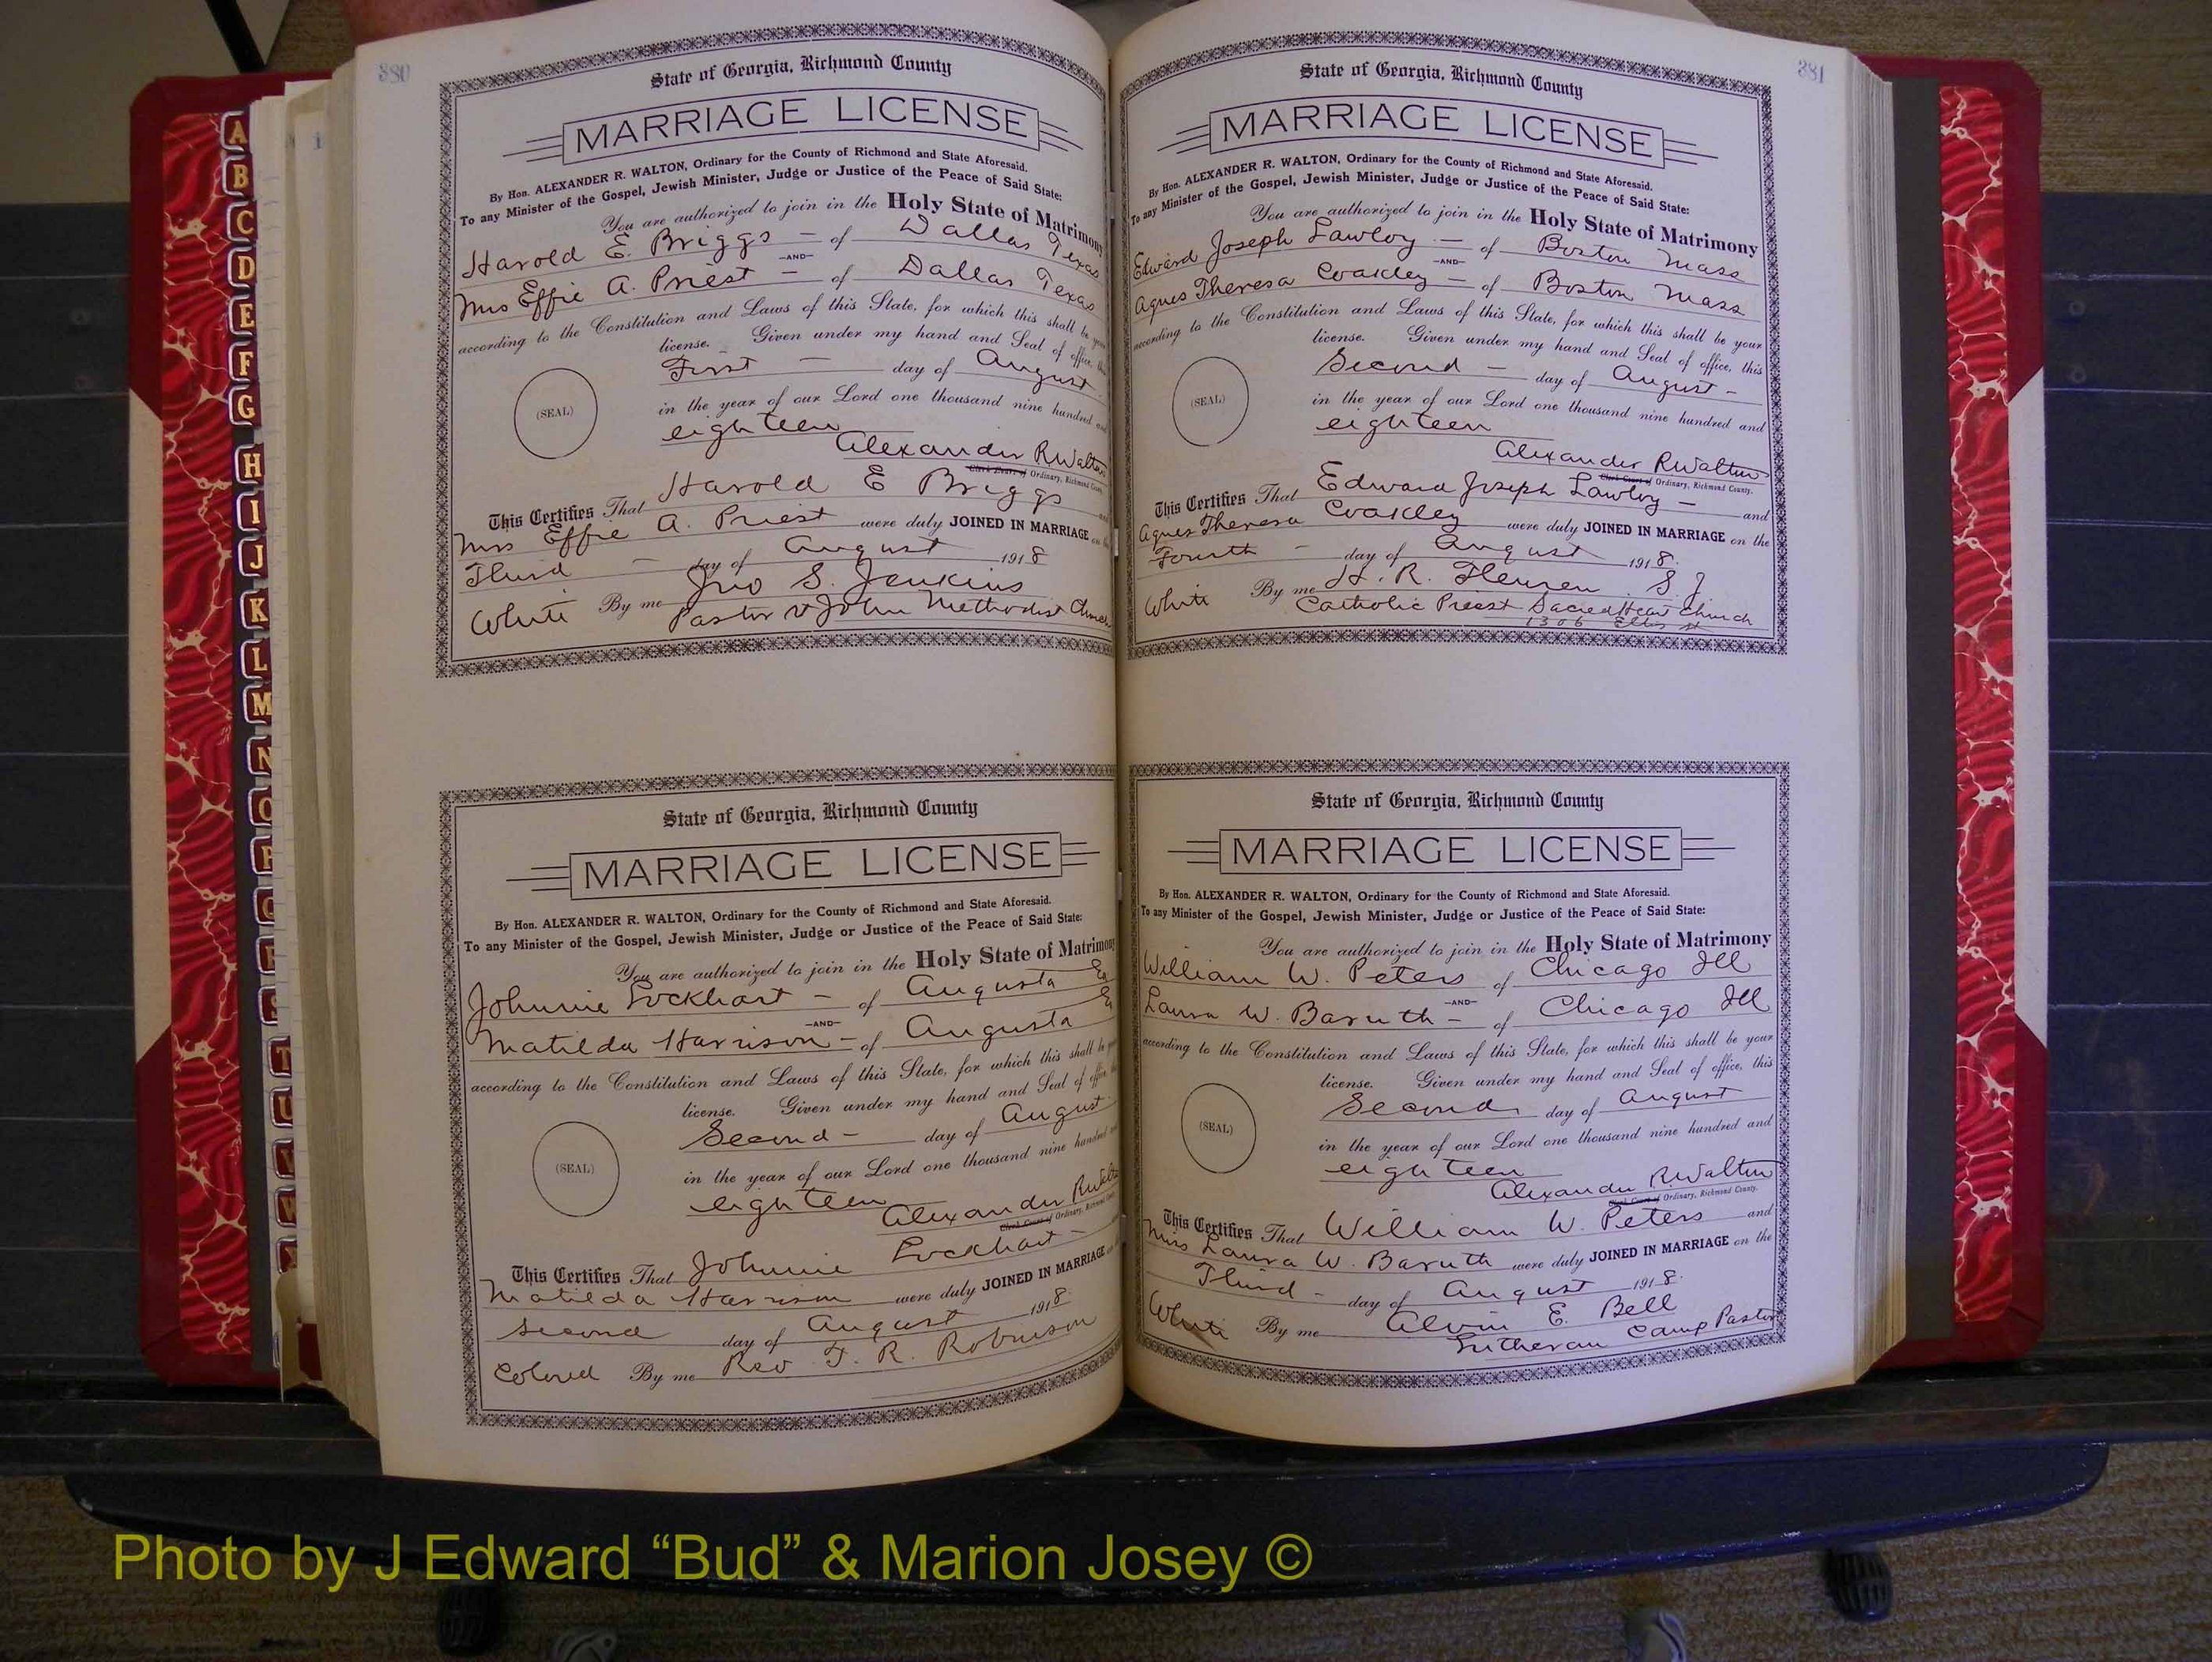 380
State of Georgia, Richmond County
MARRIAGE LICENSE
By Hon. ALEXANDER R. WALTON, Ordinary for the County of Richmond and State Aforesaid.
To any Minister of the Gospel, Jewish Minister, Judge or Justice of the Peace of Said State:
You are authorized to join in the Holy State of Matrimony
Harold E. Briggs — of Dallas Texas
—AND—
Mrs Effie A. Priest — of Dallas Texas
according to the Constitution and Laws of this State, for which this shall be your
license. Given under my hand and Seal of office, this
First — day of August
(SEAL)
in the year of our Lord one thousand nine hundred and
eighteen
Alexander R Walton
Clerk Court of Ordinary, Richmond County.
This Certifies That Harold E Briggs
Mrs Effie A. Priest were duly JOINED IN MARRIAGE on
Third — day of August 1918
White By me Jno S. Jenkins
Pastor St John Methodist Church
State of Georgia, Richmond County
MARRIAGE LICENSE
By Hon. ALEXANDER R. WALTON, Ordinary for the County of Richmond and State Aforesaid.
To any Minister of the Gospel, Jewish Minister, Judge or Justice of the Peace of Said State:
You are authorized to join in the Holy State of Matrimony
Johnnie Lockhart — of Augusta Ga
—AND—
Matilda Harrison — of Augusta
according to the Constitution and Laws of this State, for which this shall be your
license. Given under my hand and Seal of office, this
Second — day of August
(SEAL)
in the year of our Lord one thousand nine hundred
eighteen
Alexander R Walton
Clerk Court of Ordinary, Richmond County.
This Certifies That Johnnie Lockhart —
Matilda Harrison were duly JOINED IN MARRIAGE
Second day of August 1918
Colored By me Rev T. R. Robinson
381
State of Georgia, Richmond County
MARRIAGE LICENSE
By Hon. ALEXANDER R. WALTON, Ordinary for the County of Richmond and State Aforesaid.
To any Minister of the Gospel, Jewish Minister, Judge or Justice of the Peace of Said State:
You are authorized to join in the Holy State of Matrimony
Edward Joseph Lawloy — of Boston Mass
—AND—
Agnes Theresa Coakley — of Boston Mass
according to the Constitution and Laws of this State, for which this shall be your
license. Given under my hand and Seal of office, this
Second — day of August —
(SEAL)
in the year of our Lord one thousand nine hundred and
eighteen
Alexander R Walton
Clerk Court of Ordinary, Richmond County.
This Certifies That Edward Joseph Lawloy — and
Agnes Theresa Coakley were duly JOINED IN MARRIAGE on the
Fourth — day of August 1918.
White By me H. R. Fleuren S. J
Catholic Priest Sacred Heart Church
1306 Ellis St
State of Georgia, Richmond County
MARRIAGE LICENSE
By Hon. ALEXANDER R. WALTON, Ordinary for the County of Richmond and State Aforesaid.
To any Minister of the Gospel, Jewish Minister, Judge or Justice of the Peace of Said State:
You are authorized to join in the Holy State of Matrimony
William W. Peters of Chicago Ill
—AND—
Laura W. Baruth — of Chicago Ill
according to the Constitution and Laws of this State, for which this shall be your
license. Given under my hand and Seal of office, this
Second day of August
(SEAL)
in the year of our Lord one thousand nine hundred and
eighteen
Alexander R. Walton
Clerk Court of Ordinary, Richmond County.
This Certifies That William W. Peters and
Miss Laura W. Baruth were duly JOINED IN MARRIAGE on the
Third — day of August 1918.
White By me Alvin E. Bell
Lutheran Camp Pastor
A
B
C
D
E
F
G
H
I
J
K
L
M
N
O
P
Q
R
S
T
U
V
W
Photo by J Edward “Bud” & Marion Josey ©